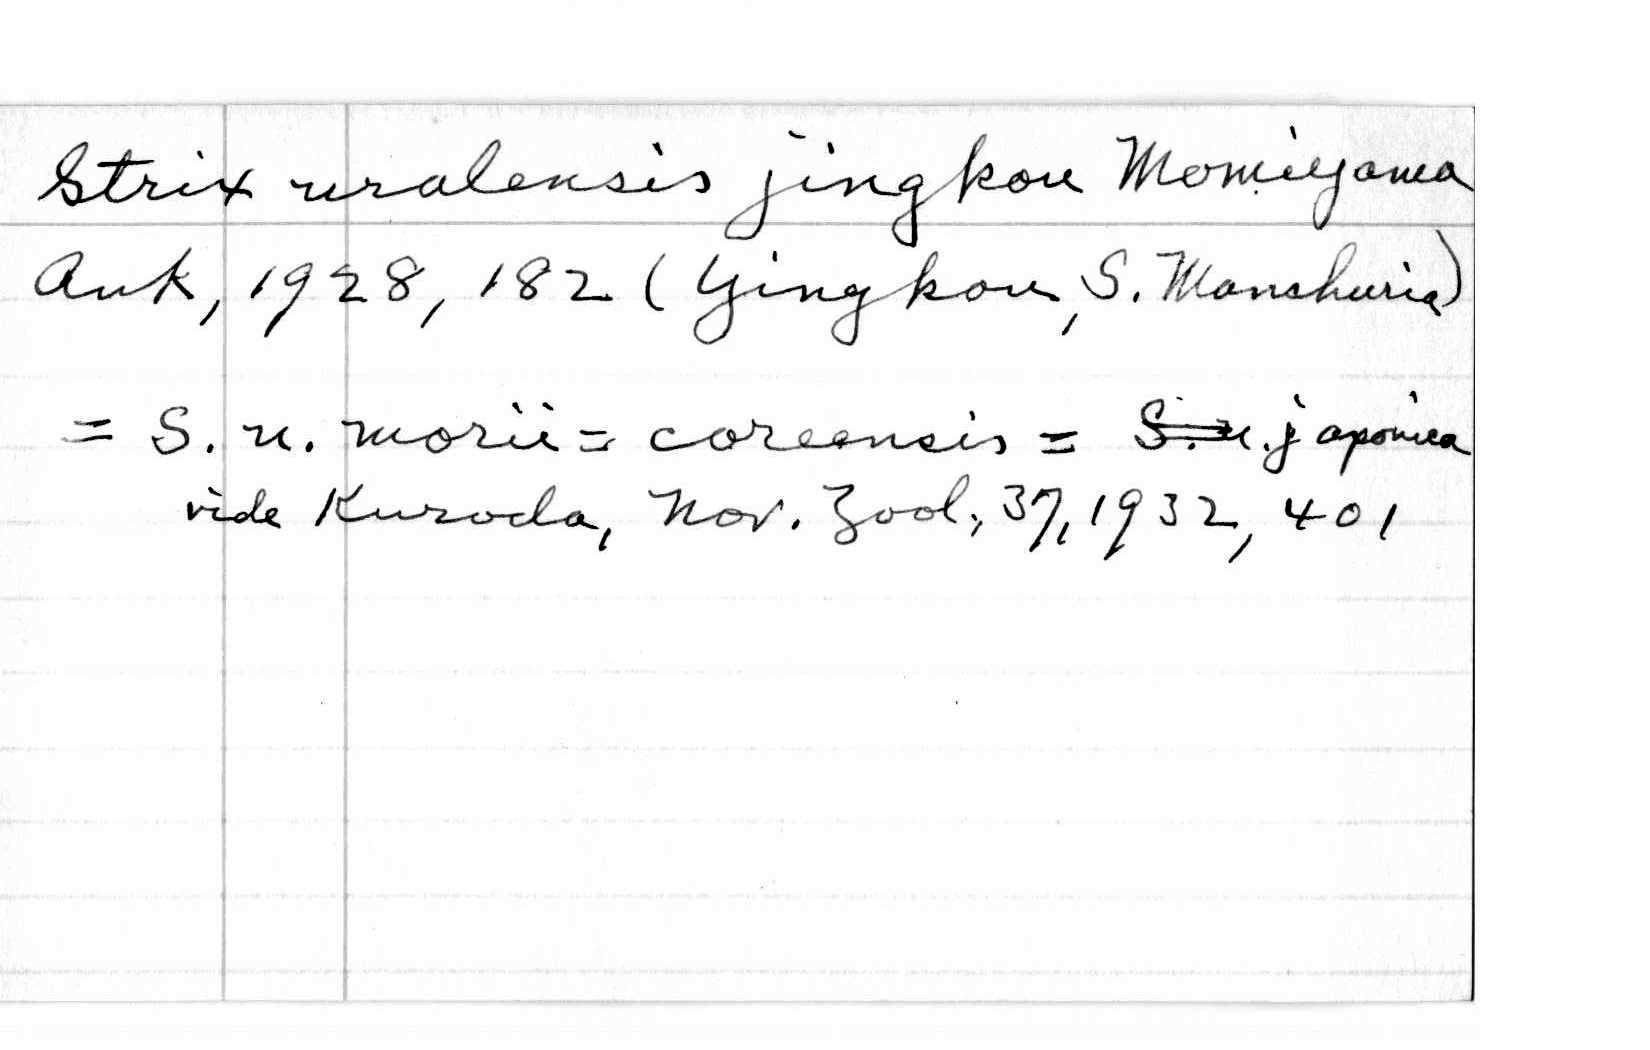 Strix uralensis jingkou Momiyama
Auk, 1928, 182 (Yingkou, S. Manshuria)
= S. u. morii = coreensis = S. u. japonica
vide Kuroda, Nov. Zool., 37, 1932, 401